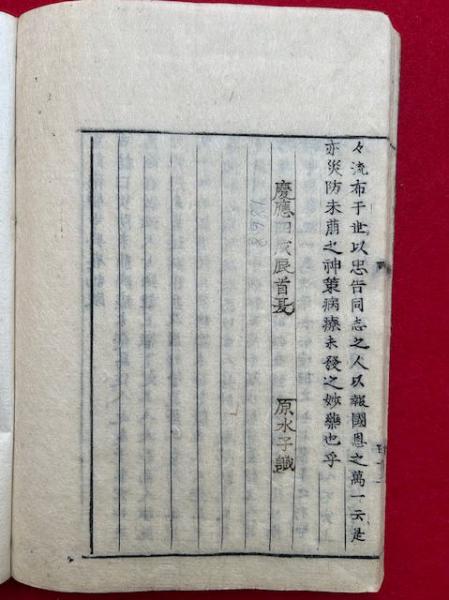 々流布于世以忠告同志之人以報國恩之萬一云是
亦災防未萠之神策病療未發之妙藥也乎
慶應四戊辰首夏
原水子識